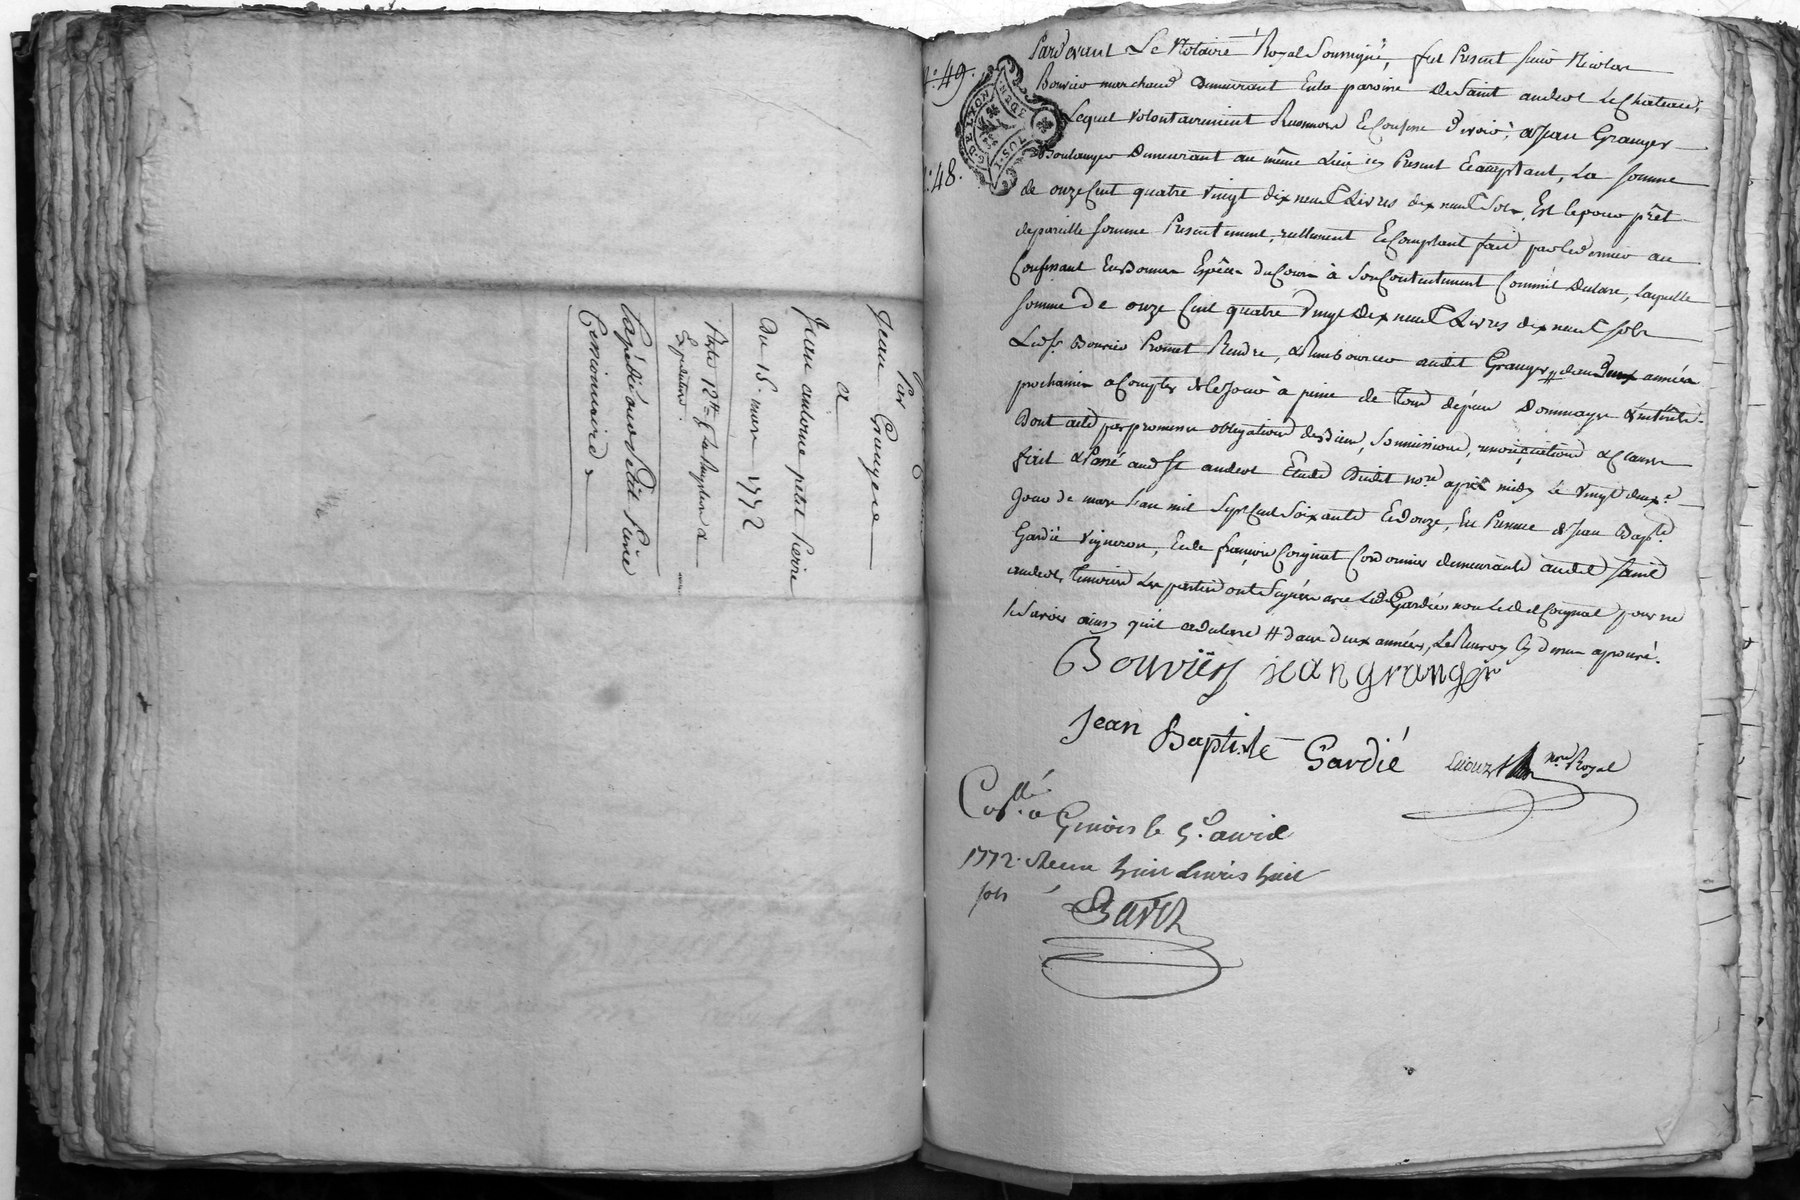 Jean Grangere
et
Jean antoine petit Pierre
Du 15. mars 1772
Expedition
Cessionnaire
49.
48.
Pardevant Le Notaire Royal Soussigné, fut Present sieur Nicolas
Bouvier marchand demeurant En la paroisse De Saint andeol Le Chateau,
Lequel volontairement Reconnoit Et Confesse devoir, à Jean Granger
Boulanger Demeurant au même Lieu icy Present Et acceptant, La somme
de onze Cent quatre vingt dix neuf Livres dix neuf Sols, Est Ce pour prêt
de pareille somme Presentement, reellement Et Comptant fait par Le dernier au
Confessant En Bonnes Espèces du Cours à Son Contentement Comm'il Declare, Laquelle
somme De onze Cent quatre Vingt Dix neuf Livres dix neuf sols
Led. sr. Bouvier Promet Rendre, & Rembourcer audit Granger # deux années
prochaines à Compter de Ce Jour à peine de Tous dépens Dommages & intérêts.
Dont acte par promesses obligations de Biens, Soumissions, renonciations & Clauses
fait & Passé aud. St andeol Etude Dudit nore. après midy Le vingt deuxe.
Jour de mars L'an mil Sept Cent Soixante Et douze, En Presence de Jean Bapte.
Gardié vigneron, Et de françois Coignet Cordonnier demeurants audit Saint
andeol, Temoins Les parties ont Signées avec Led. Gardié, non Led. Coignet pour ne
le Savoir ainsy qu'il a declaré # dans deux années, Le Renvoy Cy dessus aprouvé.
Bouvier jean granger
Jean Baptiste Gardié nore. Royal
Collé. à Givors le 5. avril
1772. Reçu huit Livres huit
sols